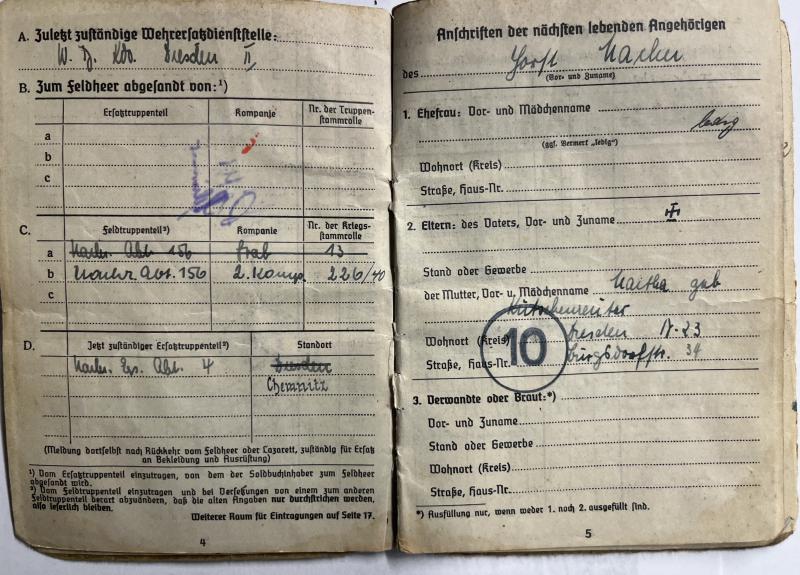 A. Zuletzt zuständige Wehrersatzdienststelle:
W. B. Kdo. Dresden II
B. Zum Feldheer abgesandt von:¹)
Ersatztruppenteil Kompanie Nr. der Truppen-
stammrolle
a
b
c
C. Feldtruppenteil²) Kompanie Nr. der Kriegs-
stammrolle
a Nachr. Abt. 156 Stab 13
b Nachr. Abt. 156 2. Komp. 226/40
c
D. Jetzt zuständiger Ersatztruppenteil²) Standort
Nachr. Ers. Abt. 4 Dresden
Chemnitz
(Meldung dortselbst nach Rückkehr vom Feldheer oder Lazarett, zuständig für Ersatz
an Bekleidung und Ausrüstung)
¹) Vom Ersatztruppenteil einzutragen, von dem der Soldbuchinhaber zum Feldheer
abgesandt wird.
²) Vom Feldtruppenteil einzutragen und bei Versetzungen von einem zum anderen
Feldtruppenteil derart abzuändern, daß die alten Angaben nur durchstrichen werden,
also leserlich bleiben.
Weiterer Raum für Eintragungen auf Seite 17.
4
Anschriften der nächsten lebenden Angehörigen
des Horst
(Vor- und Zuname)
1. Ehefrau: Vor- und Mädchenname
ledig
(ggf. Vermerk „ledig“)
Wohnort (Kreis)
Straße, Haus-Nr.
2. Eltern: des Vaters, Vor- und Zuname
Stand oder Gewerbe
der Mutter, Vor- u. Mädchenname Martha geb
Wohnort (Kreis) Dresden N-23
Straße, Haus-Nr. Bürgsdorffstr. 34
10
3. Verwandte oder Braut:*)
Vor- und Zuname
Stand oder Gewerbe
Wohnort (Kreis)
Straße, Haus-Nr.
*) Ausfüllung nur, wenn weder 1. noch 2. ausgefüllt sind.
5